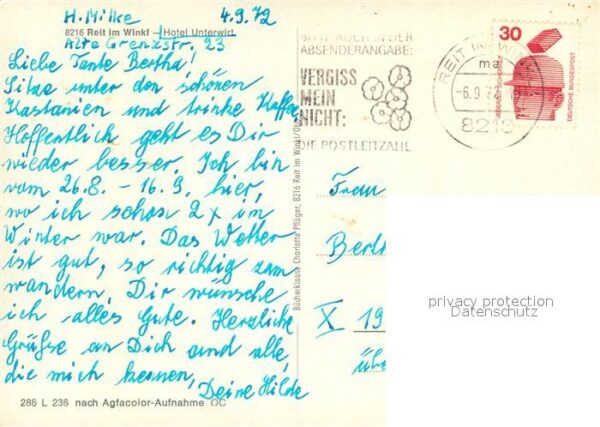 H. Milke 4.9.72
8216 Reit im Winkl Hotel Unterwirt
Alte Grenzstr. 23
Liebe Tante Bertha!
Sitze unter den schönen
Kastanien und trinke Kaffee
Hoffentlich geht es Dir
wieder besser. Ich bin
vom 26.8. - 16.9. hier,
wo ich schon 2x im
Winter war. Das Wetter
ist gut, so richtig zum
wandern. Dir wünsche
ich alles Gute. Herzliche
Grüße an Dich und alle,
die mich kennen,
Deine Hilde
286 L 236 nach Agfacolor-Aufnahme OC
Bücherklause Charlotte Pflüger, 8216 Reit im Winkl/Ob
BITTE AUCH IN DER
ABSENDERANGABE:
VERGISS
MEIN
NICHT:
DIE POSTLEITZAHL
REIT IM WINKL
ma
-6.9.72
8216
30
DEUTSCHE BUNDESPOST
Frau
Berl
X 19
übe
privacy protection
Datenschutz